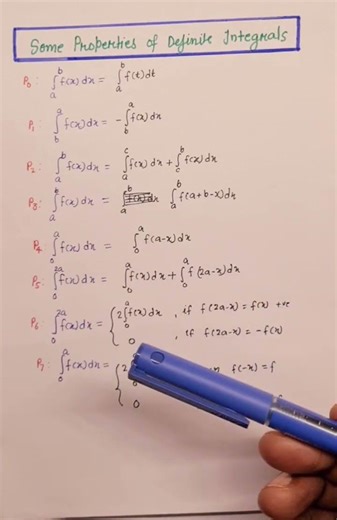 Some Properties of Definite Integrals
P₀: ∫ₐᵇ f(x) dx = ∫ₐᵇ f(t) dt
P₁: ∫_bᵃ f(x) dx = -∫_bᵃ f(x) dx
P₂: ∫ₐᵇ f(x) dx = ∫ₐᶜ f(x) dx + ∫_cᵇ f(x) dx
P₃: ∫ₐᵇ f(x) dx = ∫ₐᵇ f(a+b-x) dx
P₄: ∫₀ᵃ f(x) dx = ∫₀ᵃ f(a-x) dx
P₅: ∫₀²ᵃ f(x) dx = ∫₀ᵃ f(x) dx + ∫₀ᵃ f(2a-x) dx
P₆: ∫₀²ᵃ f(x) dx = { 2∫₀ᵃ f(x) dx , if f(2a-x) = f(x) +ve
0 , if f(2a-x) = -f(x)
P₇: ∫₀ᵃ f(x) dx = { 2 f(-x) = f
0